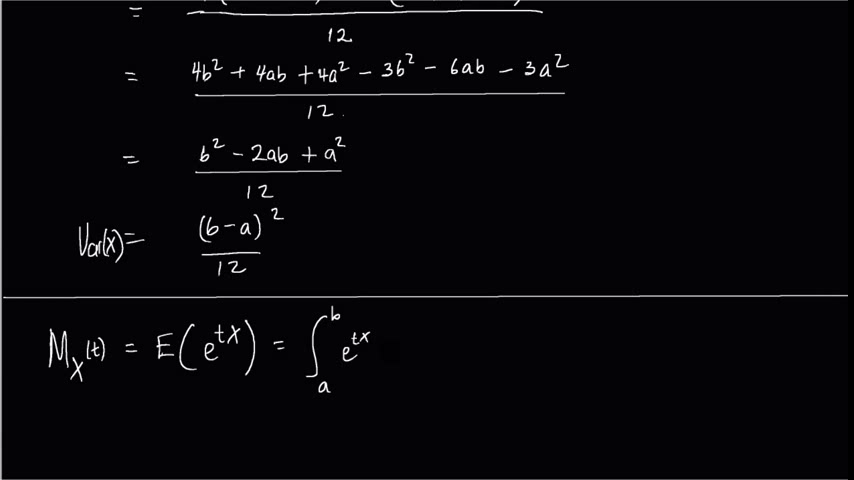 =
12
= 4b² + 4ab + 4a² - 3b² - 6ab - 3a²
12.
= b² - 2ab + a²
12
Var(x) = (b-a)²
12
M_X(t) = E(e^{tX}) = ∫_a^b e^{tx}